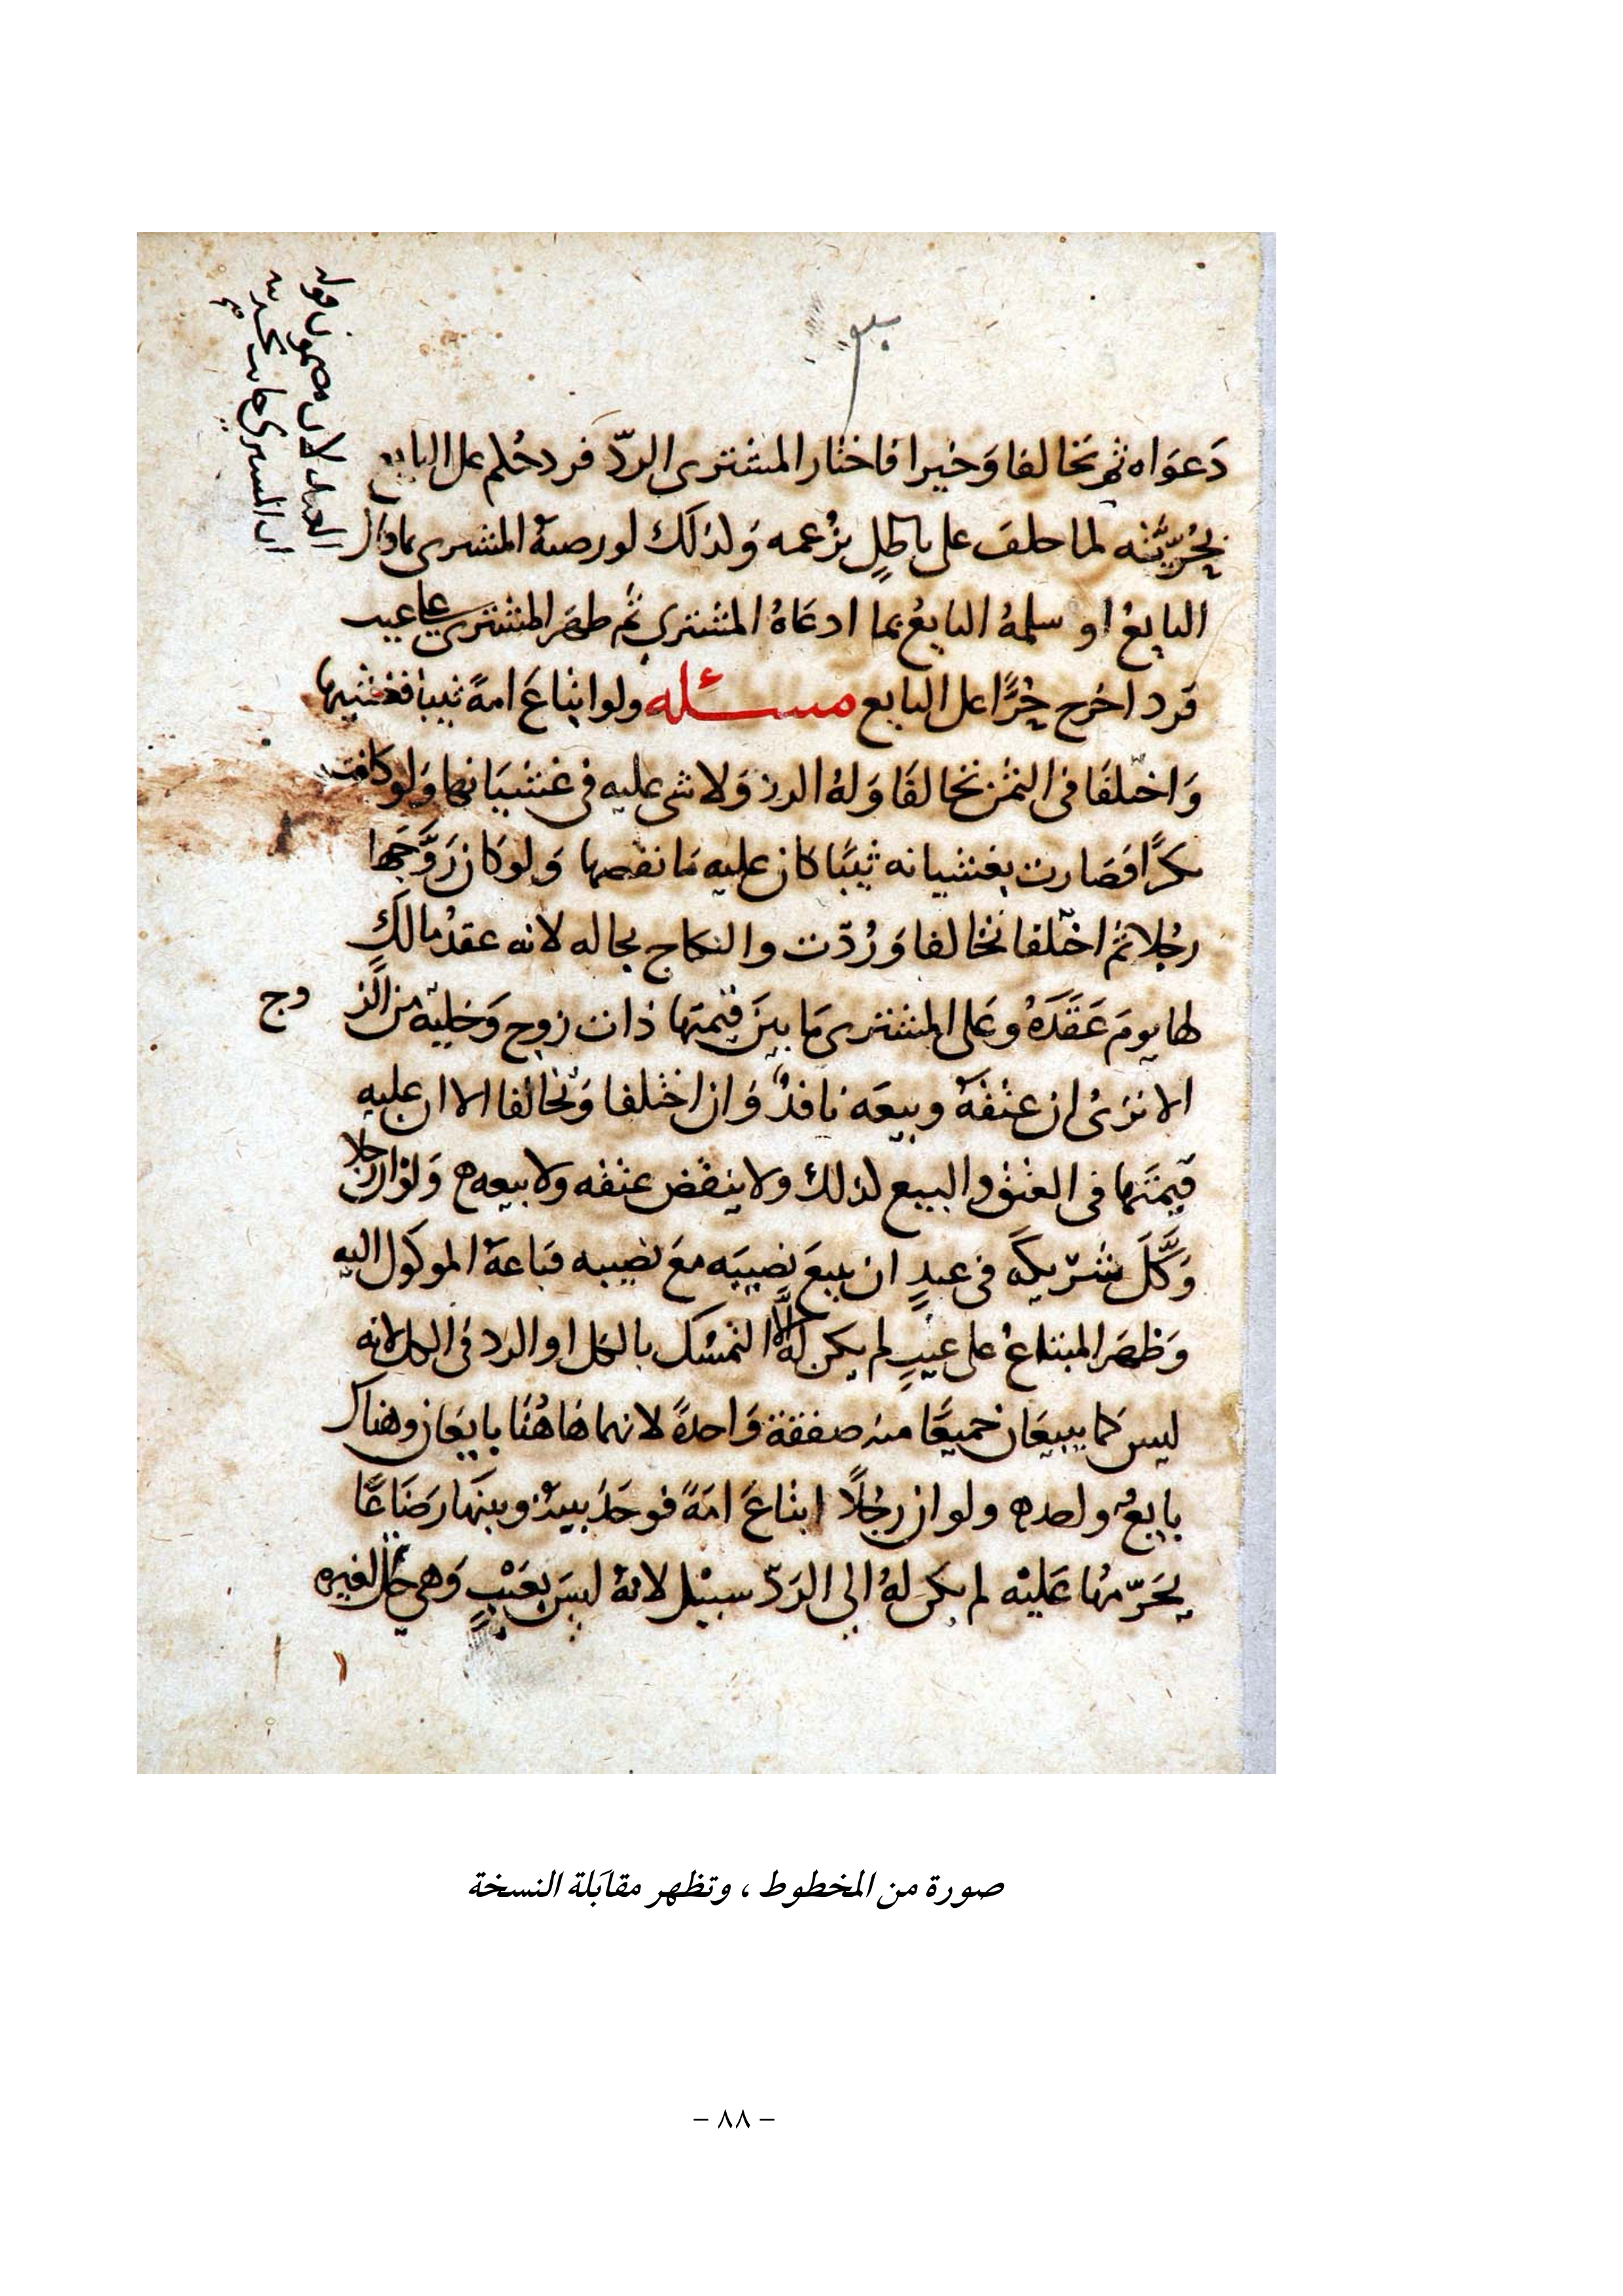 دَعوَاه ثم تحالفا وَخيرا فاختار المشترى الردّ فرد حُكم على البايع
بحُرّيّته لما حلف على باطلٍ بزُعمه وَلذلك لو رصيهُ المشترى بما قال
البايعُ او سلمهُ البايعُ بما ادعَاهُ المشتري ثم ظهَر المشترى على عيب
فرد اخرج حُرًّا على البايع مسئله ولو ابتَاعَ امةً ثيبا فغشيها
وَاختلفَا في الثمن تحالفَا وَلهُ الرد وَلا شى عليه في غشيَانها وَلو كانت
بكرًا فصَارت بغشيانه ثيبًا كان عليه مَا نقصها وَلو كان زَوَّجَهَا
رجُلا ثم اختلفا تحالفا وَرُدّت والنكاح بحاله لانه عقدُ مالكٍ
لها يومَ عَقَدَهُ وعَلى المشترى مَا بينَ قيمتها ذات زوج وَخليّة من الز
وج
الا ترَىُ ان عتقهُ وبيعَه نافذٌ وَان اختلفا وَتحالفا الا ان عليه
قيمتَها في العتق والبيع لذلك ولا ينقض عتقه ولا بيعه ه وَلو ان رجلا
وَكَّلَ شريكهُ في عبدٍ ان يبيعَ نصيبَه معَ نصيبه فبَاعَهُ الموكول اليه
وَظهَر المبتاعُ على عيبٍ لم يكن لهُ الَّا التمسُك بالكل او الرد في الكل لانه
ليس كما يبيعَان جميعًا منه صفقة وَاحدةً لانهما هَاهُنَا بايعَان وهناك
بايعٌ واحد ه ولو ان رجُلًا ابتاعَ امَةً فوجَدَ بينهُ وبينهَا رَضَاعًا
يحَرّمها عَليْه لم يكن لهُ الى الرَدّ سبيْل لانهُ ليسَ بعَيْبٍ وَهى تحل لغيره
صورة من المخطوط ، وتظهر مقابَلة النسخة
– ٨٨ –